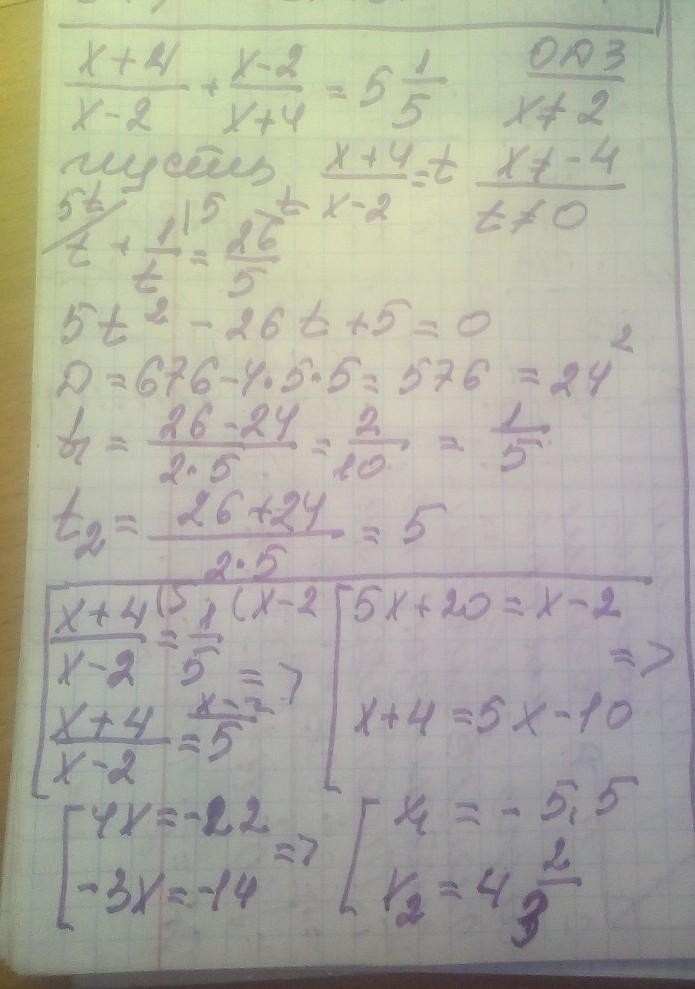 x+4/x-2 + x-2/x+4 = 5 1/5 ОДЗ
x≠2
пусть x+4/x-2 = t x≠-4
t≠0
5t/ t + 1/t |5 t = 26/5
5t² - 26t + 5 = 0
D = 676 - 4·5·5 = 576 = 24²
t₁ = 26-24/2·5 = 2/10 = 1/5
t₂ = 26+24/2·5 = 5
[ x+4/x-2 (5 = 1/5 (x-2 [ 5x+20 = x-2
=> =>
x+4/x-2 = 5 x-2 x+4 = 5x-10
[ 4x = -22 [ x₁ = -5,5
=>
-3x = -14 x₂ = 4 2/3